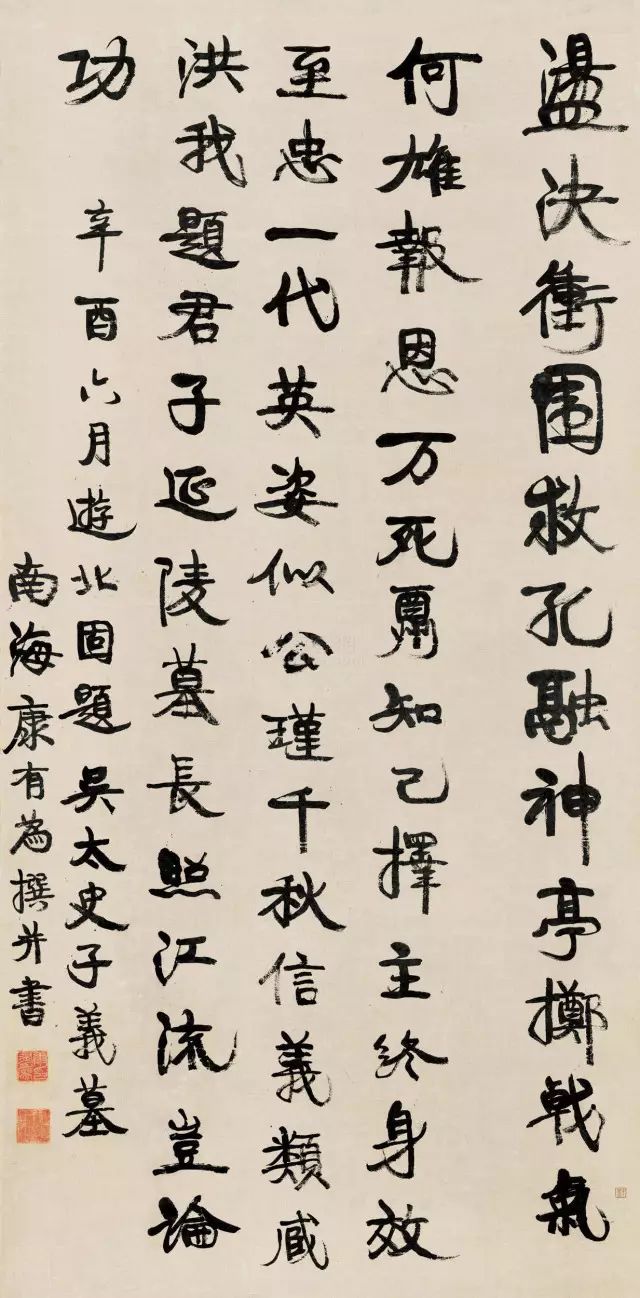 盪決衝围救孔融神亭擲戟氣
何雄報恩万死圅知己擇主終身效
至忠一代英姿似公瑾千秋信義類臧
洪我題君子延陵墓長照江流豈論
功
辛酉六月遊北固題吳太史子義墓
南海康有為撰并書